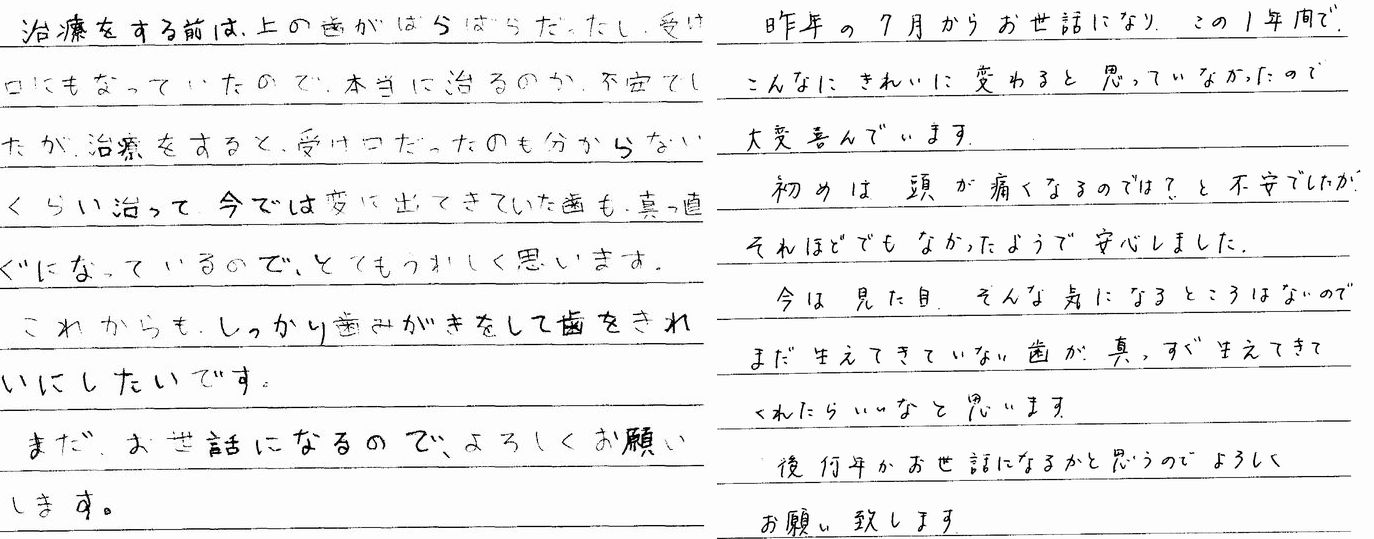 治療をする前は、上の歯がばらばらだったし、受け
口にもなっていたので、本当に治るのか、不安でし
たが、治療をすると、受け口だったのも分からない
くらい治って、今では変に出てきていた歯も、真っ直
ぐになっているので、とてもうれしく思います。
これからも、しっかり歯みがきをして歯をきれ
いにしたいです。
まだ、お世話になるので、よろしくお願い
します。
昨年の7月からお世話になり、この1年間で、
こんなにきれいに変わると思っていなかったので
大変喜んでいます。
初めは頭が痛くなるのでは?と不安でしたが、
それほどでもなかったようで安心しました。
今は見た目、そんな気になるところはないので
まだ生えてきていない歯が、真っすぐ生えてきて
くれたらいいなと思います。
後何年かお世話になるかと思うのでよろしく
お願い致します